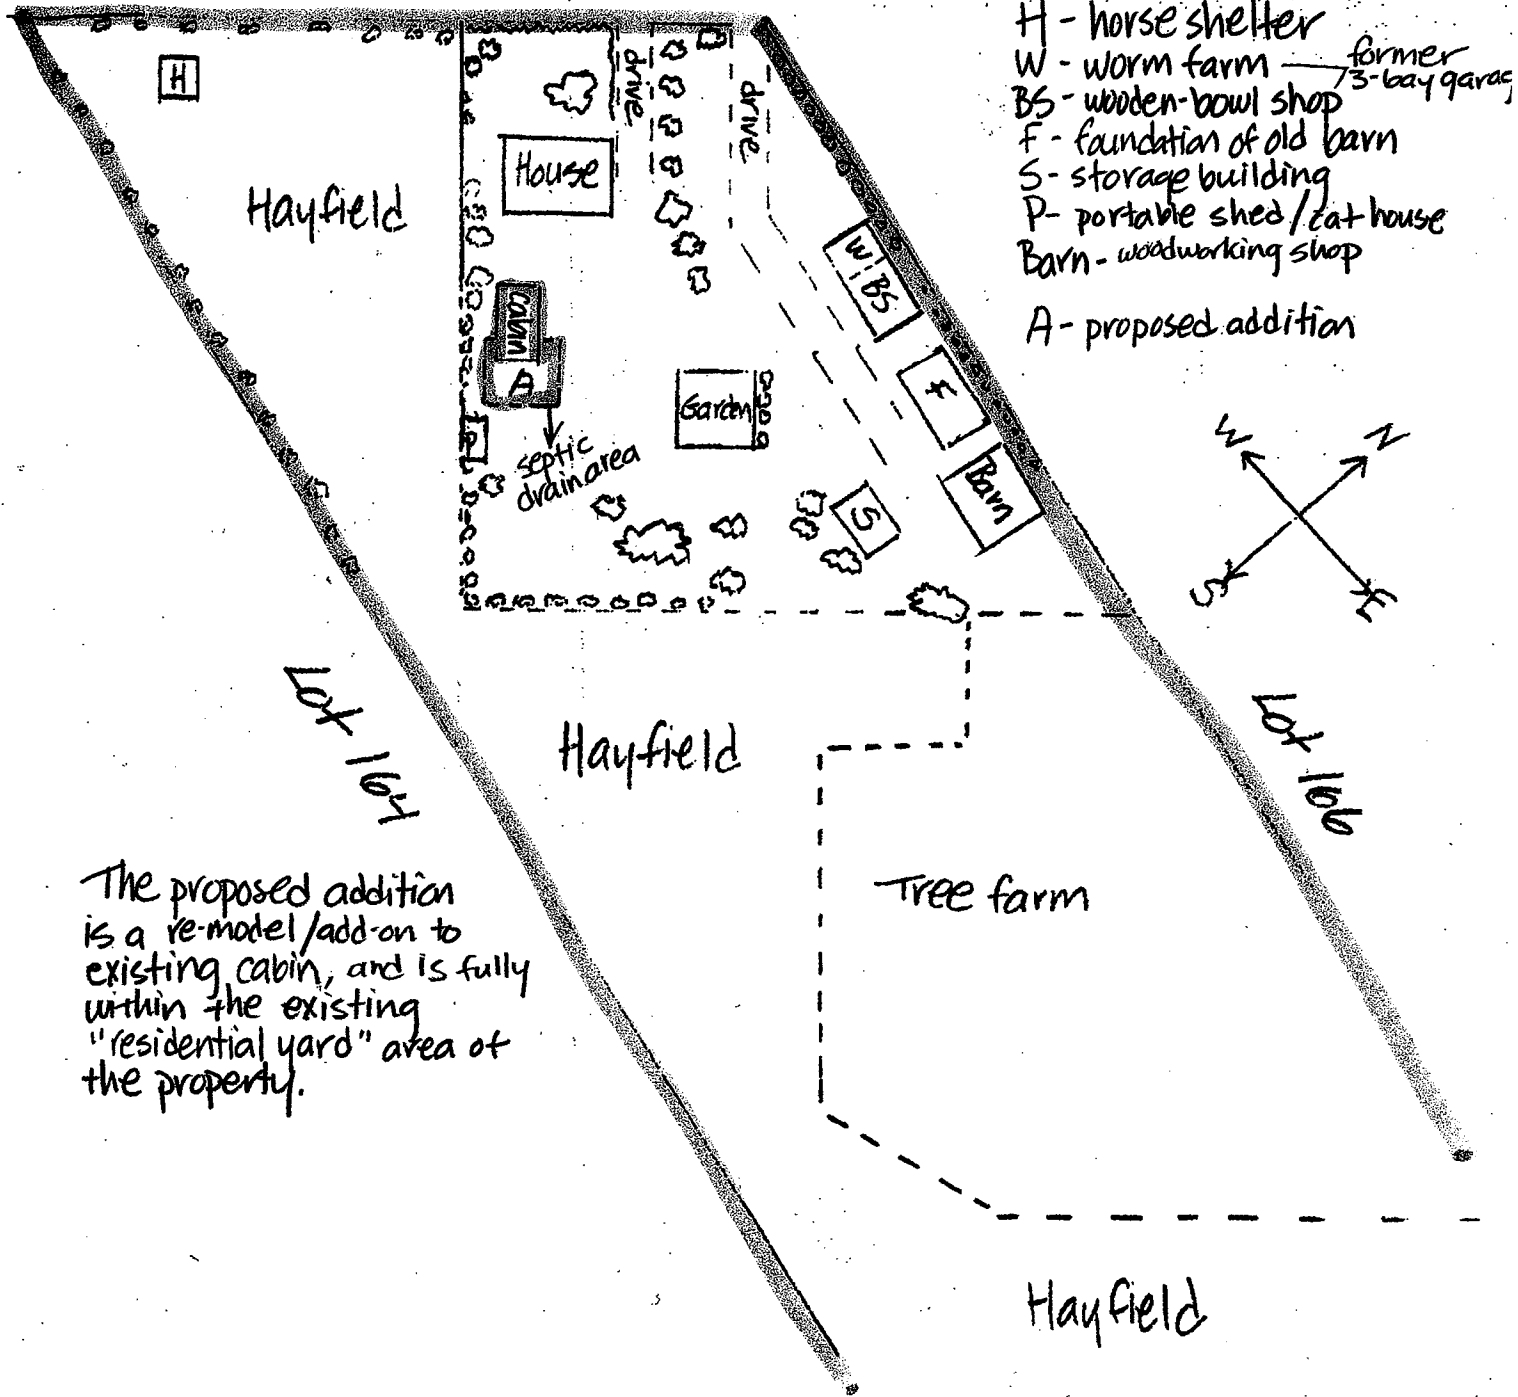 H - horse shelter
W - worm farm — former
3-bay garag
BS - wooden-bowl shop
F - foundation of old barn
S - storage building
P - portable shed/cat house
Barn - woodworking shop
A - proposed addition
H
drive
drive
House
Hayfield
W
BS
Cabin
A
F
Garden
P
septic
drain area
S
Barn
W
N
S
E
Lot 164
Hayfield
Lot 166
The proposed addition
is a re-model/add-on to
existing cabin, and is fully
within the existing
"residential yard" area of
the property.
Tree farm
Hayfield